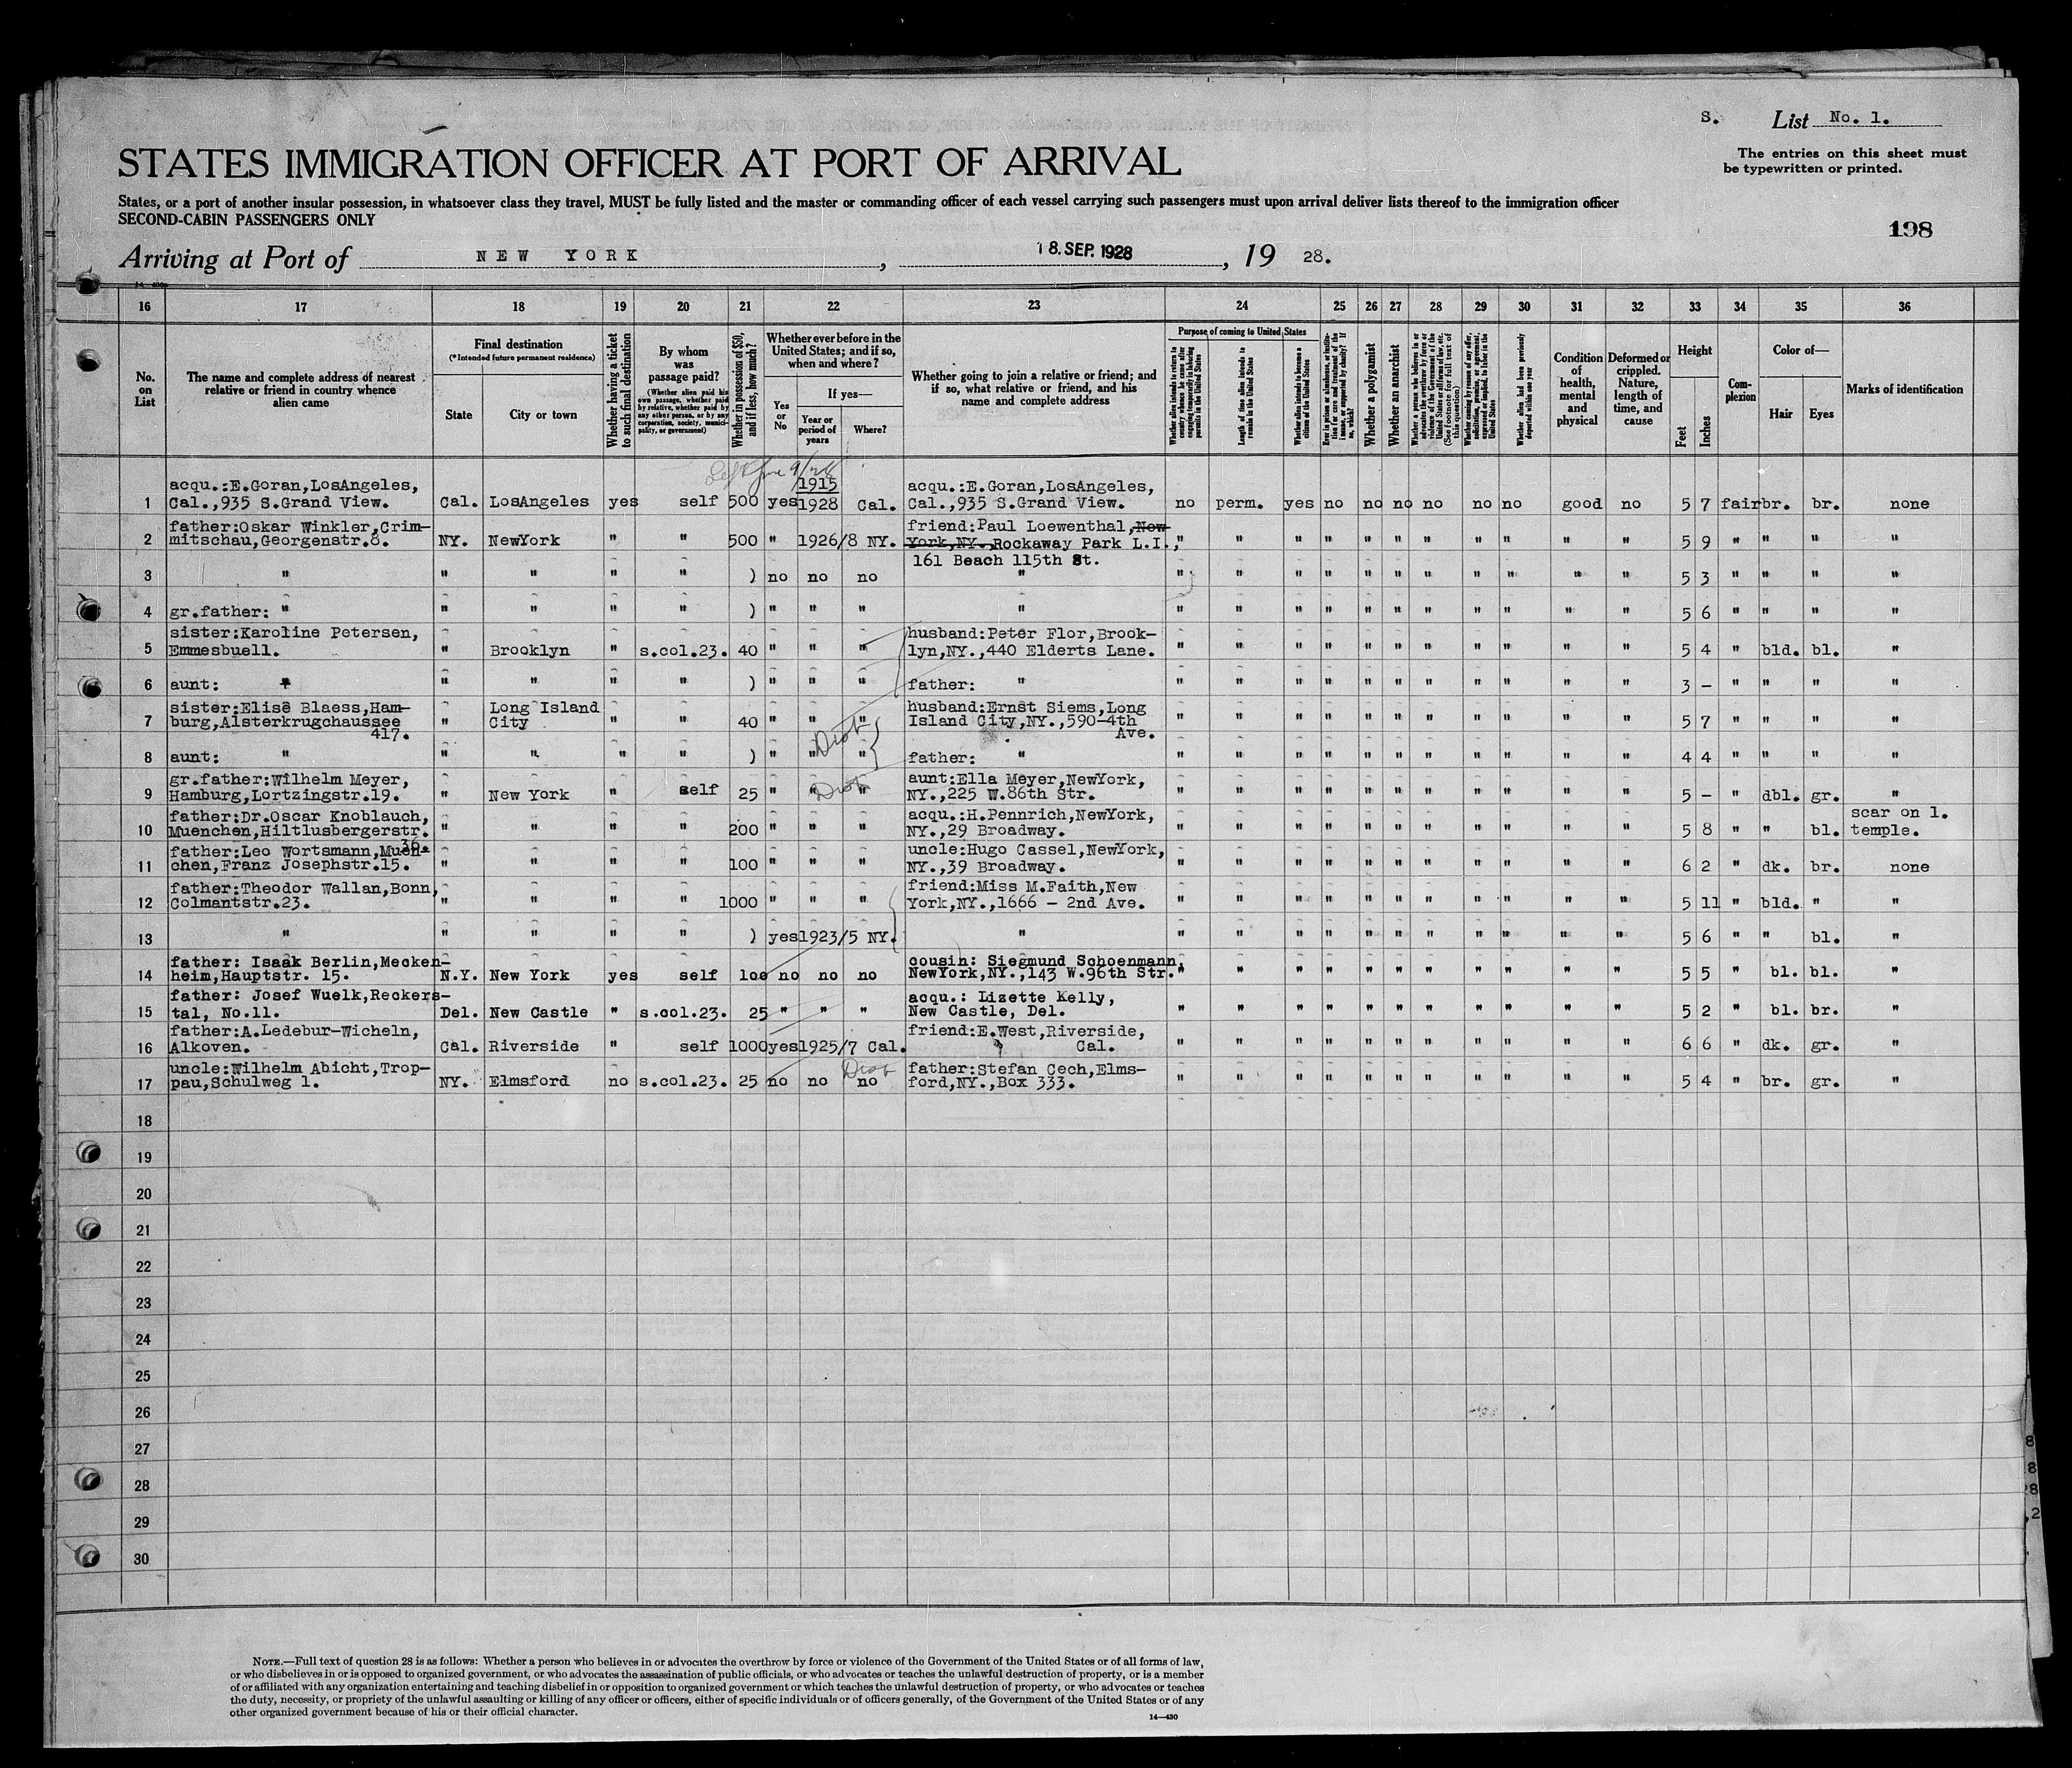 S. List No. 1.
STATES IMMIGRATION OFFICER AT PORT OF ARRIVAL
The entries on this sheet must
be typewritten or printed.
States, or a port of another insular possession, in whatsoever class they travel, MUST be fully listed and the master or commanding officer of each vessel carrying such passengers must upon arrival deliver lists thereof to the immigration officer
SECOND-CABIN PASSENGERS ONLY
198
Arriving at Port of NEW YORK, 18. SEP. 1928, 19 28.
16 17 18 19 20 21 22 23 24 25 26 27 28 29 30 31 32 33 34 35 36
No. on List
The name and complete address of nearest relative or friend in country whence alien came
Final destination
(*Intended future permanent residence)
State
City or town
Whether having a ticket to such final destination
By whom was passage paid?
(Whether alien paid his own passage, whether paid by relative, whether paid by any other person, or by any corporation, society, municipality, or government)
Whether in possession of $50, and if less, how much?
Whether ever before in the United States; and if so, when and where?
Yes or No
If yes—
Year or period of years
Where?
Whether going to join a relative or friend; and if so, what relative or friend, and his name and complete address
Purpose of coming to United States
Whether alien intends to return to country whence he came after engaging temporarily in laboring pursuits in the United States
Length of time alien intends to remain in the United States
Whether alien intends to become a citizen of the United States
Ever in prison or almshouse, or institution for care and treatment of the insane, or supported by charity? If so, which?
Whether a polygamist
Whether an anarchist
Whether a person who believes in or advocates the overthrow by force or violence of the Government of the United States or all forms of law, etc. (See footnote for full text of this question)
Whether coming by reason of any offer, solicitation, promise, or agreement, expressed or implied, to labor in the United States
Whether alien had been previously deported within one year
Condition of health, mental and physical
Deformed or crippled. Nature, length of time, and cause
Height
Feet
Inches
Complexion
Color of—
Hair
Eyes
Marks of identification
Left June 9/28
1 acqu.:E.Goran,LosAngeles, Cal.,935 S.Grand View. Cal. LosAngeles yes self 500 yes 1915 1928 Cal. acqu.:E.Goran,LosAngeles, Cal.,935 S.Grand View. no perm. yes no no no no no no good no 5 7 fair br. br. none
2 father:Oskar Winkler,Crimmitschau,Georgenstr.8. NY. NewYork " " 500 " 1926/8 NY. friend:Paul Loewenthal,New York,NY.,Rockaway Park L.I., " " " " " " " " " " " 5 9 " " " "
161 Beach 115th St.
3 " " " " " ) no no no " " " " " " " " " " " " 5 3 " " " "
4 gr.father: " " " " " ) " " " " " " " " " " " " " " " 5 6 " " " "
5 sister:Karoline Petersen, Emmesbuell. " Brooklyn " s.col.23. 40 " " " husband:Peter Flor,Brooklyn,NY.,440 Elderts Lane. " " " " " " " " " " " 5 4 " bld. bl. "
6 aunt: " " " " " ) " " " father: " " " " " " " " " " " " 3 - " " " "
7 sister:Elise Blaess,Hamburg,Alsterkrugchaussee 417. " Long Island City " " 40 " " " husband:Ernst Siems,Long Island City,NY.,590-4th Ave. " " " " " " " " " " " 5 7 " " " "
Diot
8 aunt: " " " " " ) " " " father: " " " " " " " " " " " " 4 4 " " " "
9 gr.father:Wilhelm Meyer, Hamburg,Lortzingstr.19. " New York " self 25 " " " aunt:Ella Meyer,NewYork, NY.,225 W.86th Str. " " " " " " " " " " " 5 - " dbl. gr. "
Diot
10 father:Dr.Oscar Knoblauch, Muenchen,Hiltlusbergerstr. 36. " " " " 200 " " " acqu.:H.Pennrich,NewYork, NY.,29 Broadway. " " " " " " " " " " " 5 8 " " bl. scar on l. temple.
11 father:Leo Wortsmann,Muenchen,Franz Josephstr.15. " " " " 100 " " " uncle:Hugo Cassel,NewYork, NY.,39 Broadway. " " " " " " " " " " " 6 2 " dk. br. none
12 father:Theodor Wallan,Bonn, Colmantstr.23. " " " " 1000 " " " friend:Miss M.Faith,New York,NY.,1666 - 2nd Ave. " " " " " " " " " " " 5 11 " bld. " "
13 " " " " " ) yes 1923/5 NY. " " " " " " " " " " " " 5 6 " " bl. "
14 father: Isaak Berlin,Meckenheim,Hauptstr. 15. N.Y. New York yes self 100 no no no cousin: Siegmund Schoenmann, NewYork,NY.,143 W.96th Str. " " " " " " " " " " " 5 5 " bl. bl. "
15 father: Josef Wuelk,Reckerstal, No.11. Del. New Castle " s.col.23. 25 " " " acqu.: Lizette Kelly, New Castle, Del. " " " " " " " " " " " 5 2 " bl. br. "
16 father:A.Ledebur-Wicheln, Alkoven. Cal. Riverside " self 1000 yes 1925/7 Cal. friend:E.West,Riverside, Cal. " " " " " " " " " " " 6 6 " dk. gr. "
17 uncle:Wilhelm Abicht,Troppau,Schulweg 1. NY. Elmsford no s.col.23. 25 no no no father:Stefan Cech,Elmsford,NY.,Box 333. " " " " " " " " " " " 5 4 " br. gr. "
Diot
18
19
20
21
22
23
24
25
26
27
28
29
30
NOTE.—Full text of question 28 is as follows: Whether a person who believes in or advocates the overthrow by force or violence of the Government of the United States or of all forms of law,
or who disbelieves in or is opposed to organized government, or who advocates the assassination of public officials, or who advocates or teaches the unlawful destruction of property, or is a member
of or affiliated with any organization entertaining and teaching disbelief in or opposition to organized government or which teaches the unlawful destruction of property, or who advocates or teaches
the duty, necessity, or propriety of the unlawful assaulting or killing of any officer or officers, either of specific individuals or of officers generally, of the Government of the United States or of any
other organized government because of his or their official character.
14—430